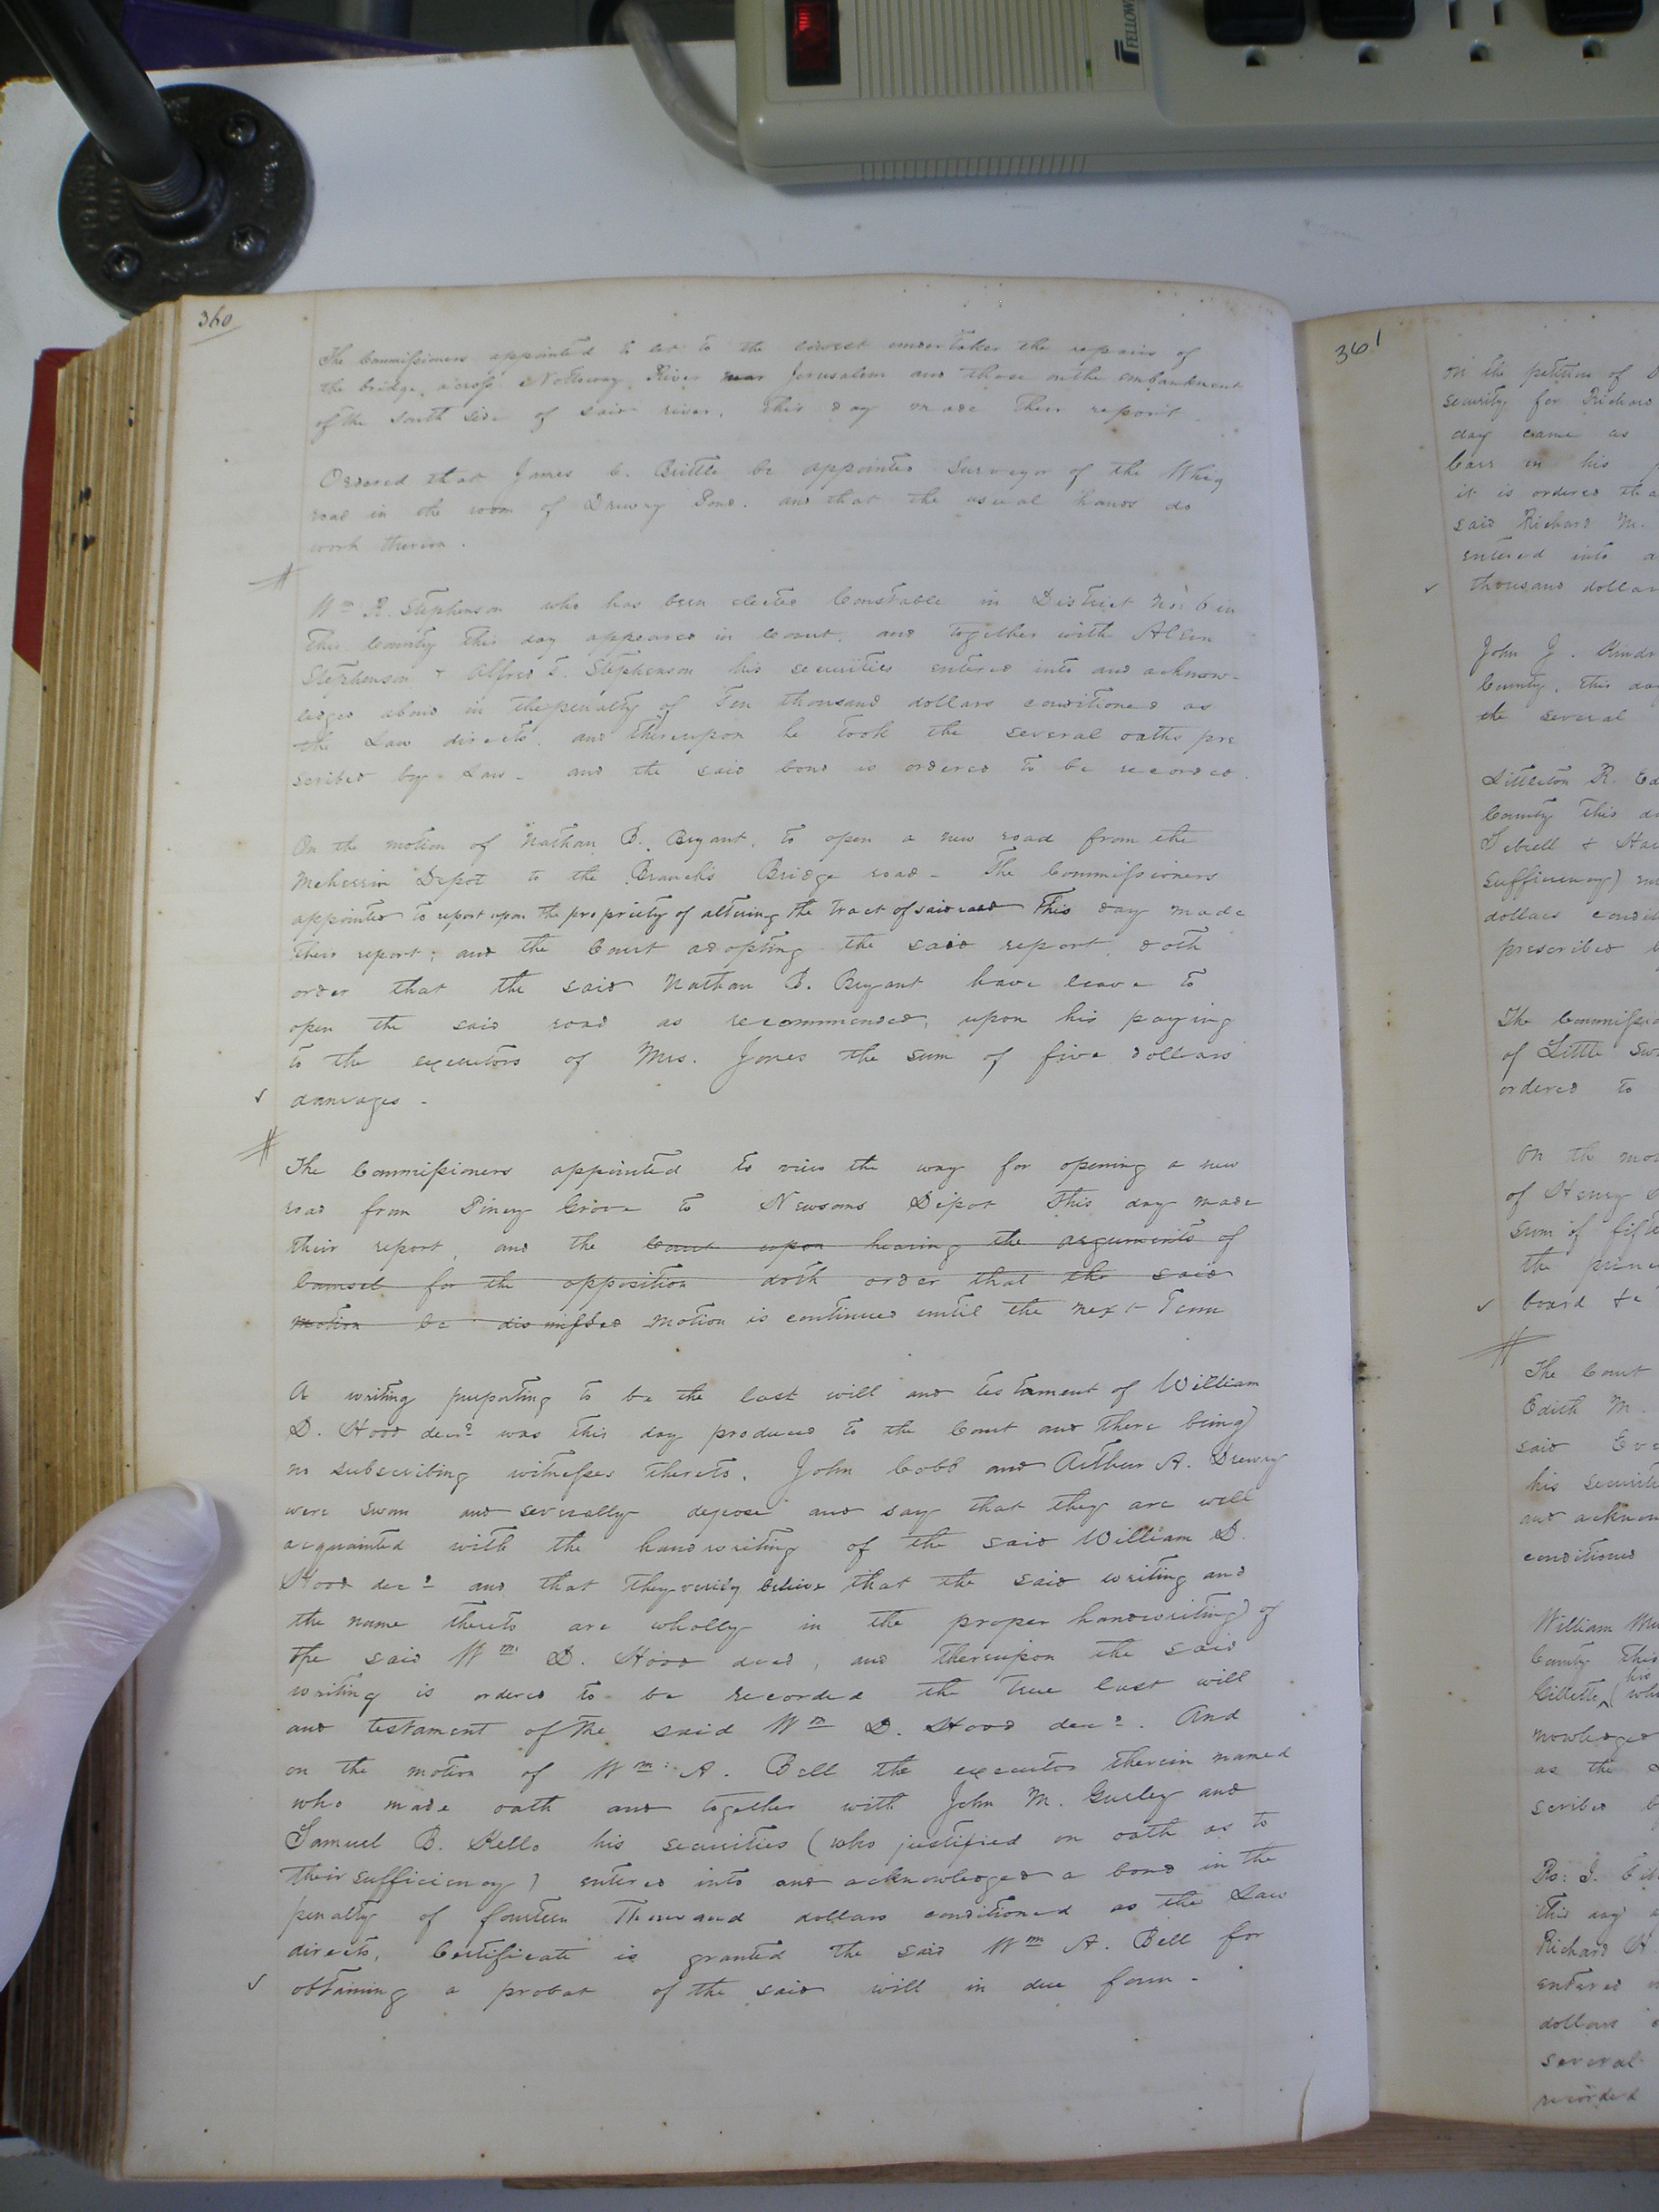 FELLOW
360
The Commissioners appointed to let to the lowest undertaker the repairs of
the bridge across Nottoway River near Jerusalem and those on the embankment
of the south side of said river, this day made their report.
Ordered that James C. Brittle be appointed Surveyor of the Whig
road in the room of Drewry Pond. and that the usual hands do
work thereon.
Wm R. Stephenson who has been elected Constable in District No: 6 in
this County this day appeared in Court. and together with
Stephenson & Alfred T. Stephenson his securities entered into and acknow-
ledged abond in the penalty of Ten thousand dollars conditioned as
the Law directs. and thereupon he took the several oaths pre
scribed by Law - and the said bond is ordered to be recorded.
On the motion of Nathan B. Bryant, to open a new road from the
Meherrin Depot to the Branch's Bridge road - The Commissioners
appointed to report upon the propriety of altering the tract of said road This day made
their report; and the Court adopting the said report, doth
order that the said Nathan B. Bryant have leave to
open the said road as recommended, upon his paying
to the executors of Mrs. Jones the sum of five dollars
damages -
The Commissioners appointed to view the way for opening a new
road from Piney Grove to Newsoms Depot This day made
their report, and the Court upon hearing the arguments of
Counsel for the opposition doth order that the said
motion be dismissed motion is continued until the next Term
A writing purporting to be the last will and testament of William
D. Hood decd was this day produced to the Court and there being
no subscribing witnesses thereto, John Cobb and Arthur A. Drewry
were sworn and severally depose and say that they are well
acquainted with the handwriting of the said William D.
Hood decd and that they verily believe that the said writing and
the name thereto are wholly in the proper handwriting of
the said Wm D. Hood decd, and thereupon the said
writing is ordered to be recorded the true last will
and testament of the said Wm D. Hood decd. And
on the motion of Wm: A. Bell the executor therein named
who made oath and together with John M. Gurley and
Samuel B. Kello his securities (who justified on oath as to
their sufficiency) entered into and acknowledged a bond in the
penalty of fourteen Thousand dollars conditioned as the Law
directs, Certificate is granted the said Wm A. Bell for
obtaining a probat of the said will in due form -
361
On the petition of
security for Richard
day came as
Carr in his
it is ordered tha
said Richard M.
entered into a
thousand dollar
John J. Kindr
County, this da
the several
Littleton R. Ed
County this d
Sebrell & Ha
sufficiency) en
dollars condi
prescribed b
The Commissio
of Little Sw
ordered to
On the mo
of Henry
sum of fifte
the princ
board &c
The Court
Edith M.
said
his securiti
and acknow
conditioned
William Mu
County this
Gillette, his (who
nowledged
as the
scribed b
Ro: J.
This day
Richard H
entered
dollars
several
recorded